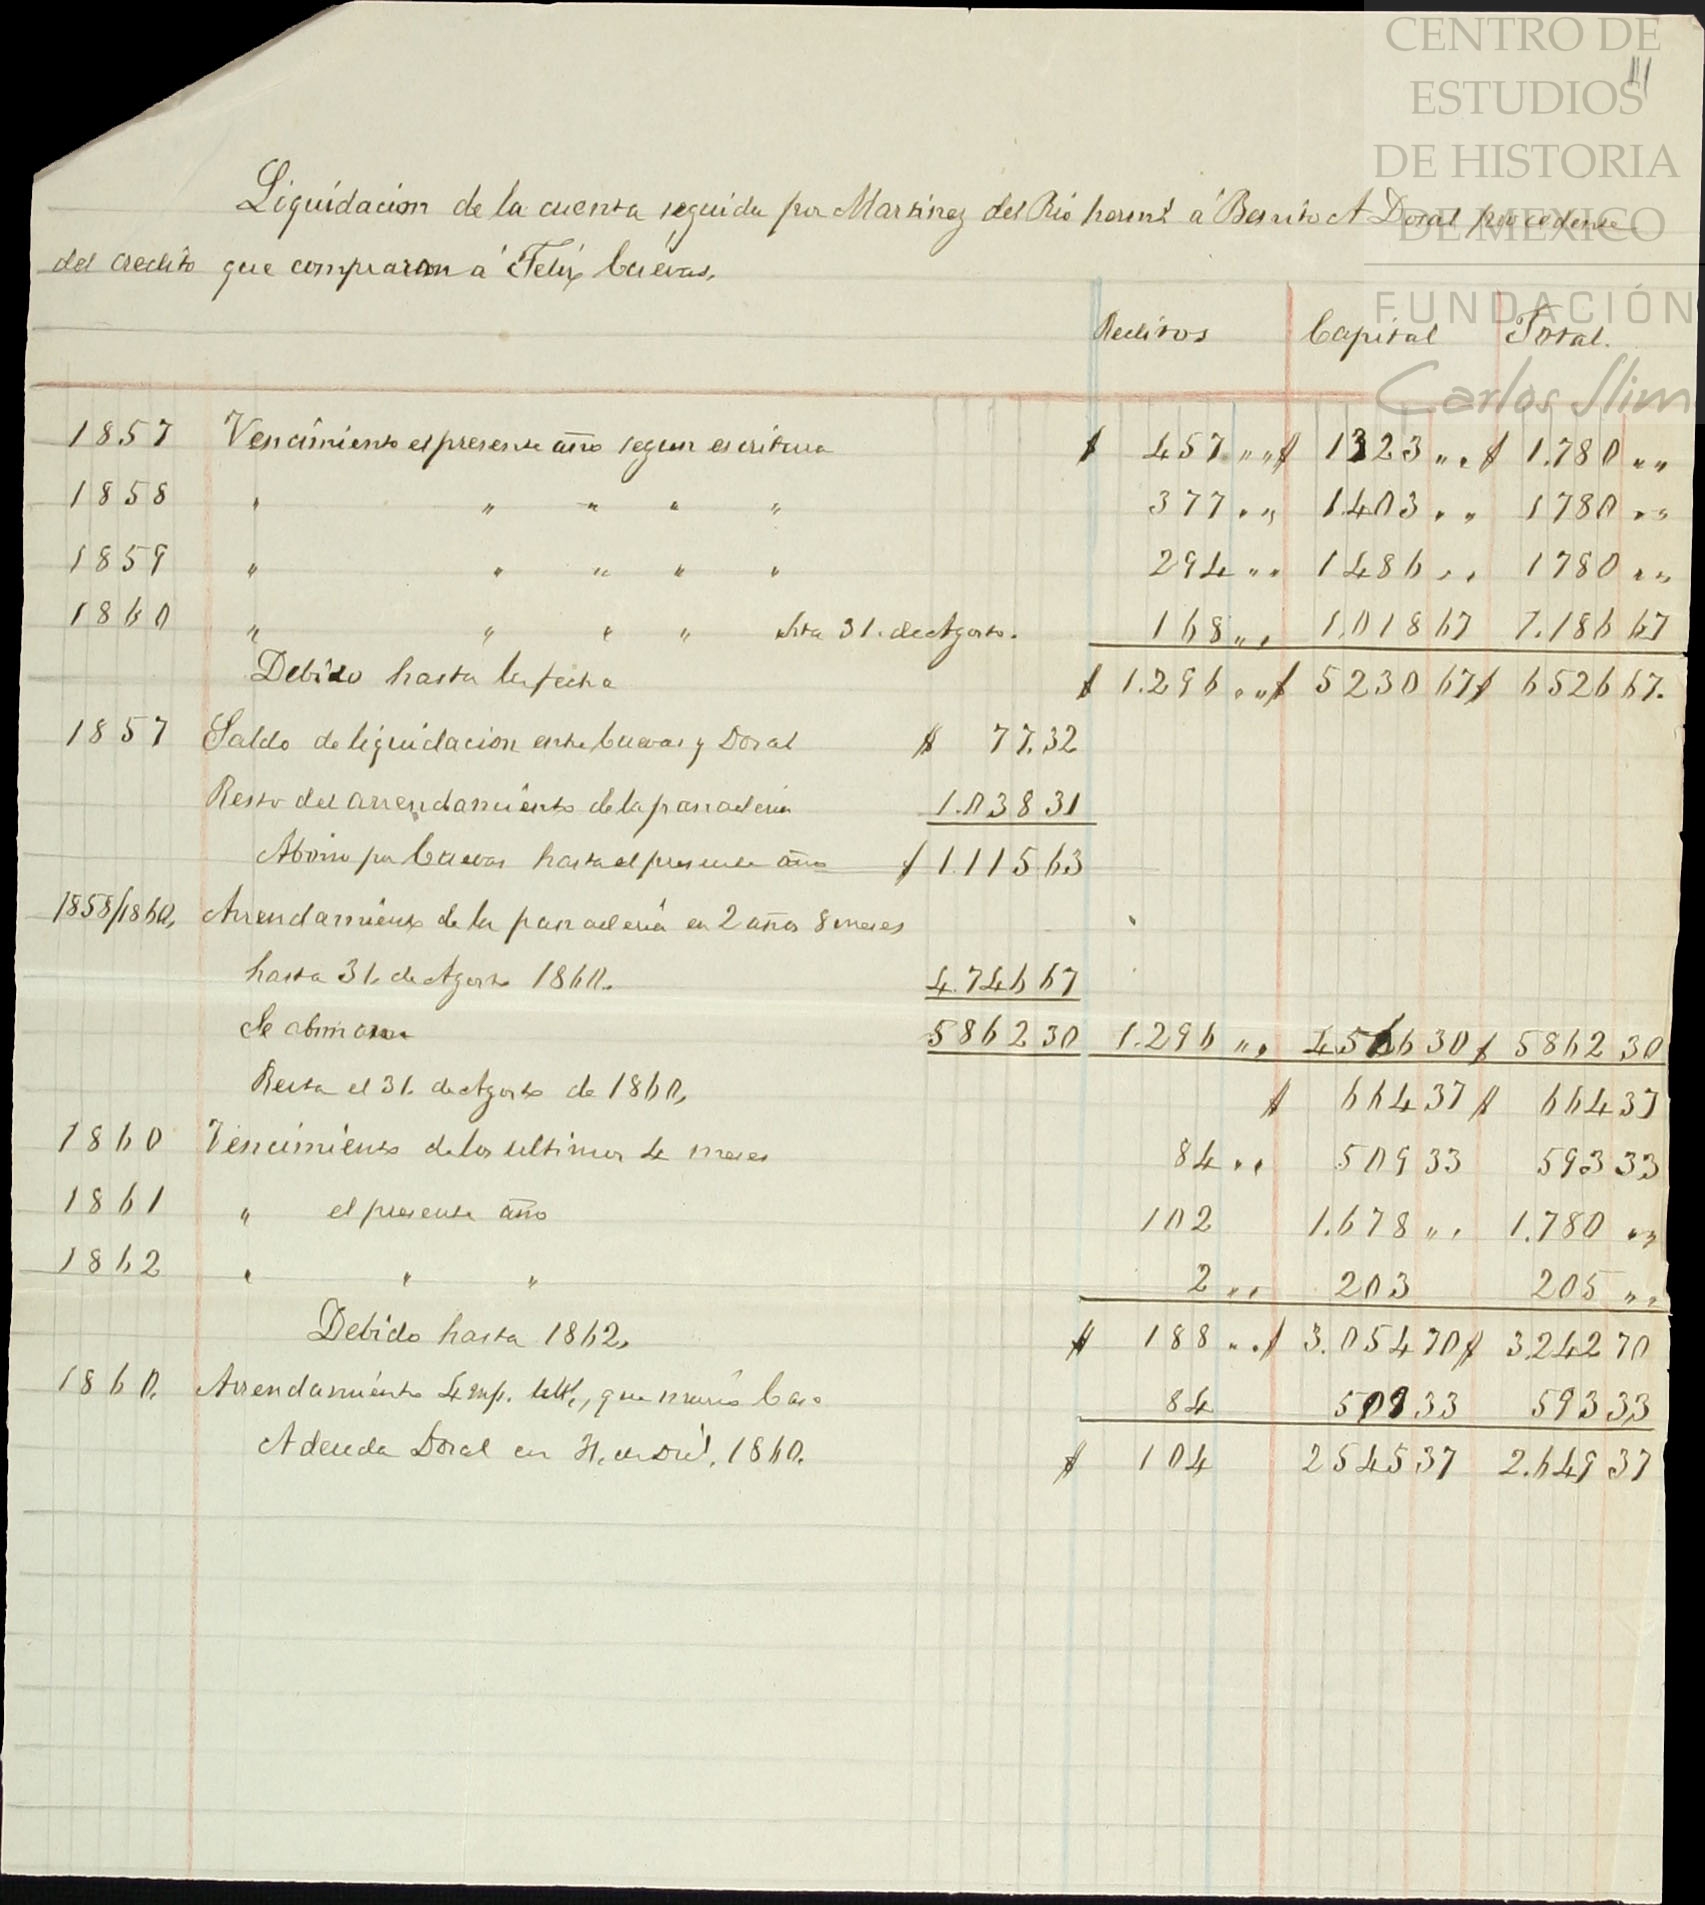 CENTRO DE
ESTUDIOS
DE HISTORIA
DE MEXICO
FUNDACIÓN
Carlos Slim
Liquidacion de la cuenta seguida por Martinez del Rio herms á Benito A Dosal procedente
del credito que compraron á Felix Cuevas.
Reditos Capital Total.
1857 Vencimiento el presente año segun escritura $ 457 „ „ $ 1323 „ „ $ 1.780 „ „
1858 „ „ „ „ „ 377 „ „ 1403 „ „ 1780 „ „
1859 „ „ „ „ „ 294 „ „ 1486 „ „ 1780 „ „
1860 „ „ „ „ hsta 31. de Agosto. 168 „ „ 1.018 67 1.186 67
Debido hasta la fecha $ 1.296 „ „ $ 5230 67 $ 6526 67.
1857 Saldo de liquidacion entre Cuevas y Dosal $ 77.32
Resto del arrendamiento de la panaderia 1.038 31
Abono por Cuevas hasta el presente año $ 1.115 63
1858/1860, Arrendamiento de la panaderia en 2 años 8 meses
hasta 31. de Agosto 1860. 4.746 67
Se abonaron 5862 30 1.296 „ „ 4566 30 $ 5862 30
Resta el 31. de Agosto de 1860, $ 664 37 $ 664 37
1860 Vencimiento de los ultimos 4 meses 84 „ „ 509 33 593 33
1861 „ el presente año 102 1.678 „ „ 1.780 „ „
1862 „ „ „ 2 „ „ 203 205 „ „
Debido hasta 1862, $ 188 „ „ $ 3.054 70 $ 3.242 70
1860. Arrendamiento 4 que 84 509 33 593 33
Adeuda Dosal en 31. de Dic. 1860. $ 104 2545 37 2.649 37